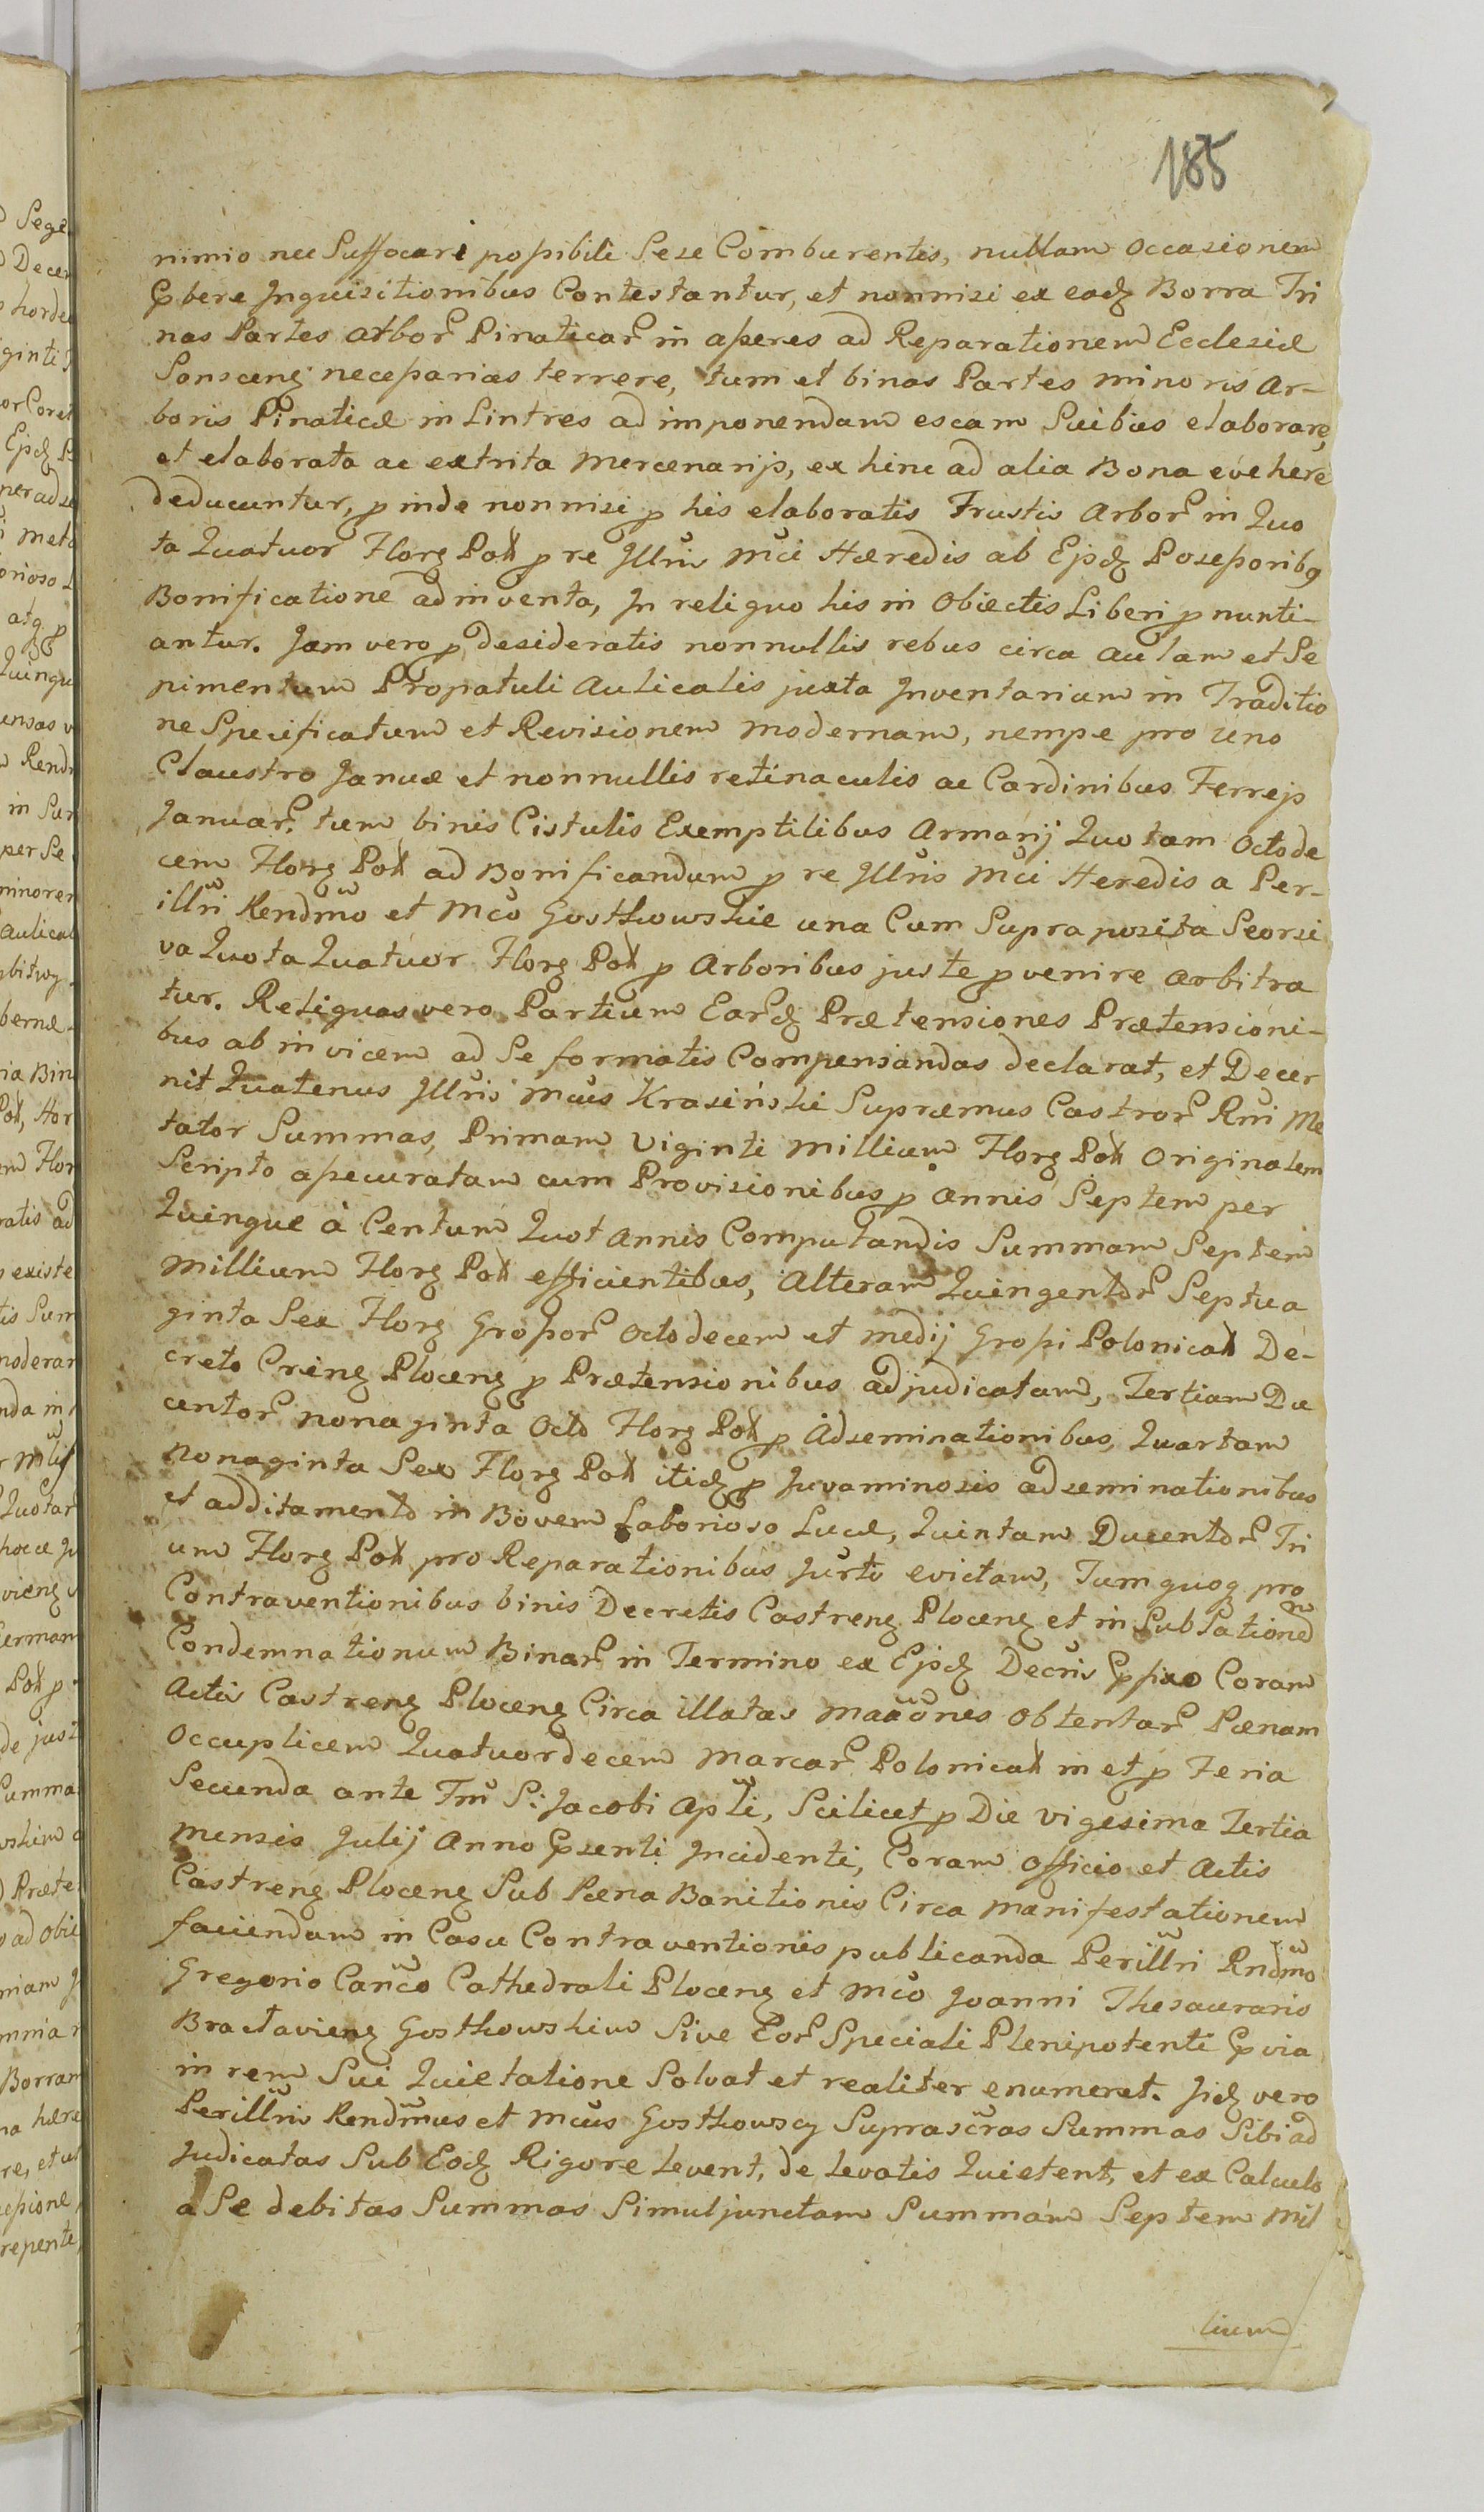 185
nimio nec Suffocari possibili Sese Comburentis, nullam occasionem
Prbere Inquisitionibus Contestantur, et nonnisi ex eadz Borra Tri
nas Partes arbor Pinaticar in asseres ad Reparationem Ecclesiæ
necessarias terrere, tum et binas Partes minoris Ar-
boris Pinaticæ in Lintres ad imponendam escam Suibus elaborare,
et elaborata ac extrita mercenarijs, ex hinc ad alia Bona evehere
deducuntur, p inde nonnisi p his elaboratis Frustis Arbor in Quo
ta Quatuor Florz Polł p re Illris Mci Hæredis ab Ejsdz Possessoribq
Bonificatione adinventa, In reliquo his in Obiectis Liberi p nunti-
antur. Jam vero p desideratis nonnullis rebus circa aulam et Se
pimentum Propatuli Aulicalis juxta Inventarium in Traditio
ne Specificatum et Revisionem modernam, nempe pro uno
Claustro Januæ et nonnullis retinaculis ac Cardinibus Ferrejs
Januar, tum binis Cistulis Exemptilibus Armarij Quotam Octode
cem Florz Polł ad Bonificandum p re Illris Mci Heredis a Per-
illri Rendmo et Mco Gosthowskie una Cum Supra posita Seorsi
va Quota Quatuor Florz Polł p Arboribus juste p venire arbitra
tur. Reliquas vero Partium Eardz Prætensiones Prætensioni-
bus ab invicem ad Se formatis Compensandas declarat, et Decer
nit Quatenus Illris Mcus Krasiński Supræmus Castror Rni Me
tator Summas, Primam Viginti millium Florz Polł Originalem
Scripto assecuratam cum Provisionibus p annis Septem per
Quinque à Centum Quot Annis Computandis Summam Septem
Millium Florz Polł efficientibus, Alteram Quingentor Septua
ginta Sex Florz Grossor Octodecem et medij Grossi Polonical De-
creto Plocenz p Prætensionibus adjudicatam, Tertiam Du
centor nonaginta Octo Florz Polł p Adseminationibus, Quartam
Nonaginta Sex Florz Polł itidz p Juvaminosis adseminationibus
et additamento in Bovem Laborioso Lucæ, Quintam Ducentor Tri
um Florz Polł pro Reparationibus Jurto evictam, Tum quoq pro
Contraventionibus binis Decretis Castrenz Plocenz et in Sublatione
Condemnationum Binar in Termino ex Ejsdz Decris Prfixo Coram
Actis Castrenz Plocenz Circa illatas maxones Obtentar Pænam
Occuplicem Quatuordecem Marcar Polonical in et p Feria
Secunda ante Fm S: Jacobi Apli, Scilicet p Die vigesima Tertia
Mensis Julij Anno Prsenti Incidenti, Coram Officio et Actis
Castrenz Plocenz Sub Pæna Banitionis Circa Manifestationem
faciendam in Casu Contraventionis publicanda Perillri Rndmo
Gregorio Canco Cathedrali Plocenz et Mco Joanni Thesaurario
Braclavienz Gosthowskim Sive Eor Speciali Plenipotenti Prvia
in rem Sui Quietatione Solvat et realiter enumeret. Jidz vero
Perillris Rendmus et Mcus Gosthowscy Suprascras Summas Sibi ad
Judicatas Sub Eodz Rigore levent, de levatis Quietent, et ex Calculo
a Se debitas Summas Simul junctam Summam Septem Mil
lium